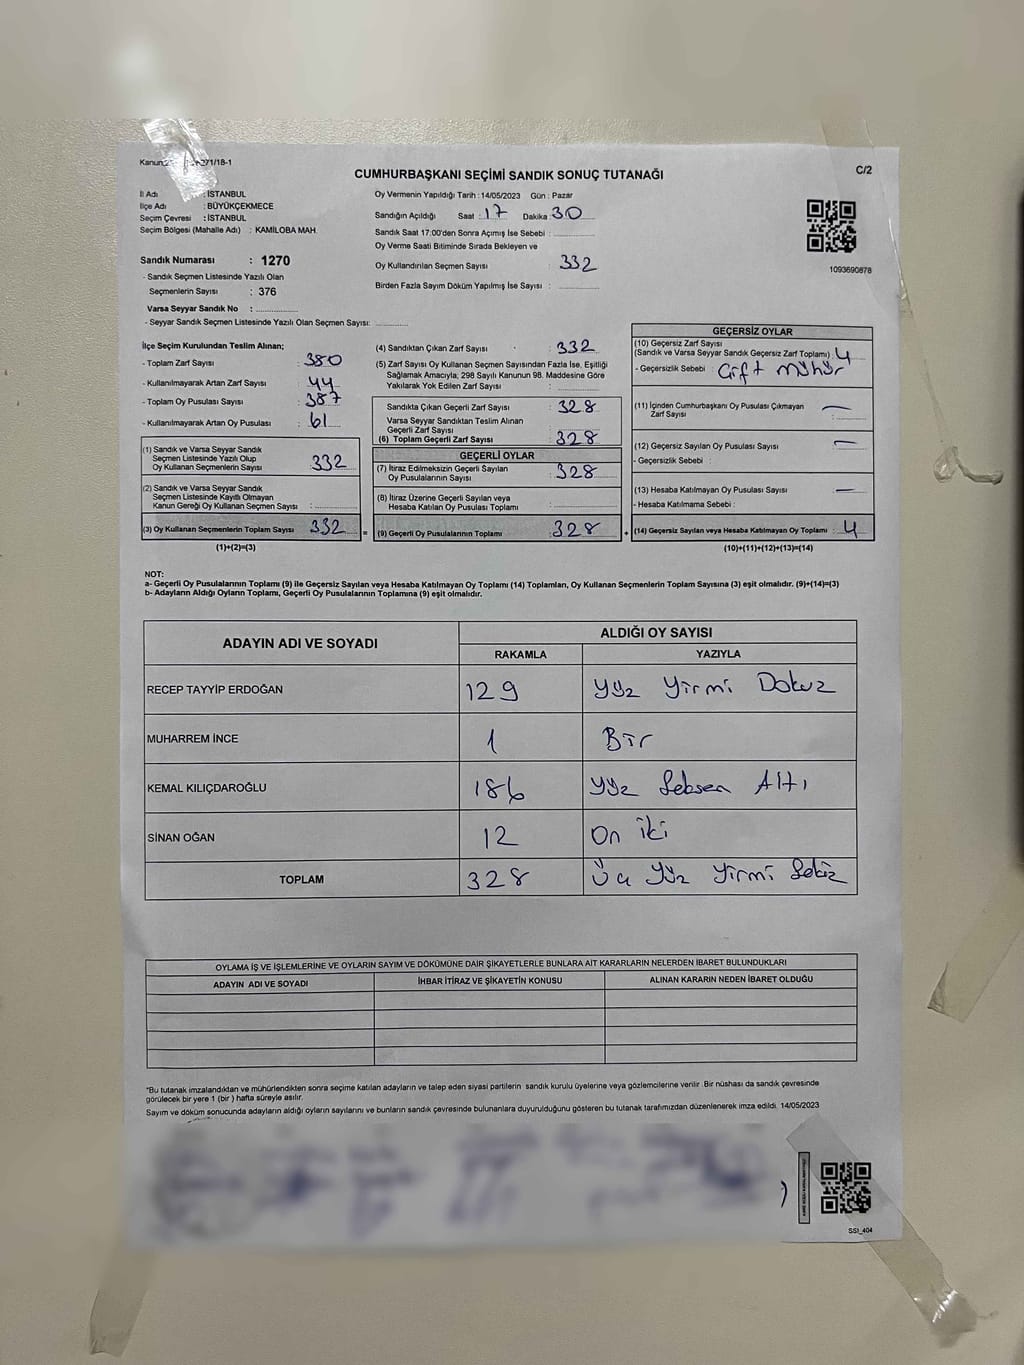 CUMHURBAŞKANI SEÇİMİ SANDIK SONUÇ TUTANAĞI
C/2
İl Adı : İSTANBUL
İlçe Adı : BÜYÜKÇEKMECE
Seçim Çevresi : İSTANBUL
Seçim Bölgesi (Mahalle Adı) : KAMİLOBA MAH.
Sandık Numarası : 1270
- Sandık Seçmen Listesinde Yazılı Olan
Seçmenlerin Sayısı : 376
Varsa Seyyar Sandık No :
- Seyyar Sandık Seçmen Listesinde Yazılı Olan Seçmen Sayısı:
Oy Vermenin Yapıldığı Tarih : 14/05/2023 Gün : Pazar
Sandığın Açıldığı Saat : 17 Dakika : 30
Sandık Saat 17:00'den Sonra Açımış İse Sebebi :
Oy Verme Saati Bitiminde Sırada Bekleyen ve
Oy Kullandırılan Seçmen Sayısı : 332
Birden Fazla Sayım Döküm Yapılmış İse Sayısı :
1093690878
İlçe Seçim Kurulundan Teslim Alınan;
- Toplam Zarf Sayısı : 380
- Kullanılmayarak Artan Zarf Sayısı : 44
- Toplam Oy Pusulası Sayısı : 387
- Kullanılmayarak Artan Oy Pusulası : 61
(1) Sandık ve Varsa Seyyar Sandık
Seçmen Listesinde Yazılı Olup
Oy Kullanan Seçmenlerin Sayısı : 332
(2) Sandık ve Varsa Seyyar Sandık
Seçmen Listesinde Kayıtlı Olmayan
Kanun Gereği Oy Kullanan Seçmen Sayısı :
(3) Oy Kullanan Seçmenlerin Toplam Sayısı : 332
(1)+(2)=(3)
(4) Sandıktan Çıkan Zarf Sayısı : 332
(5) Zarf Sayısı Oy Kullanan Seçmen Sayısından Fazla İse, Eşitliği
Sağlamak Amacıyla, 298 Sayılı Kanunun 98. Maddesine Göre
Yakılarak Yok Edilen Zarf Sayısı :
Sandıkta Çıkan Geçerli Zarf Sayısı : 328
Varsa Seyyar Sandıktan Teslim Alınan
Geçerli Zarf Sayısı
(6) Toplam Geçerli Zarf Sayısı : 328
GEÇERLİ OYLAR
(7) İtiraz Edilmeksizin Geçerli Sayılan
Oy Pusulalarının Sayısı : 328
(8) İtiraz Üzerine Geçerli Sayılan veya
Hesaba Katılan Oy Pusulası Toplamı :
= (9) Geçerli Oy Pusulalarının Toplamı : 328
GEÇERSİZ OYLAR
(10) Geçersiz Zarf Sayısı
(Sandık ve Varsa Seyyar Sandık Geçersiz Zarf Toplamı) : 4
- Geçersizlik Sebebi : Çift mühür
(11) İçinden Cumhurbaşkanı Oy Pusulası Çıkmayan
Zarf Sayısı : —
(12) Geçersiz Sayılan Oy Pusulası Sayısı : —
- Geçersizlik Sebebi :
(13) Hesaba Katılmayan Oy Pusulası Sayısı : —
- Hesaba Katılmama Sebebi :
+ (14) Geçersiz Sayılan veya Hesaba Katılmayan Oy Toplamı : 4
(10)+(11)+(12)+(13)=(14)
NOT:
a- Geçerli Oy Pusulalarının Toplamı (9) ile Geçersiz Sayılan veya Hesaba Katılmayan Oy Toplamı (14) Toplamları, Oy Kullanan Seçmenlerin Toplam Sayısına (3) eşit olmalıdır. (9)+(14)=(3)
b- Adayların Aldığı Oyların Toplamı, Geçerli Oy Pusulalarının Toplamına (9) eşit olmalıdır.
ADAYIN ADI VE SOYADI ALDIĞI OY SAYISI
RAKAMLA YAZIYLA
RECEP TAYYİP ERDOĞAN 129 Yüz Yirmi Dokuz
MUHARREM İNCE 1 Bir
KEMAL KILIÇDAROĞLU 186 Yüz Seksen Altı
SİNAN OĞAN 12 On iki
TOPLAM 328 Üç Yüz Yirmi Sekiz
OYLAMA İŞ VE İŞLEMLERİNE VE OYLARIN SAYIM VE DÖKÜMÜNE DAİR ŞİKAYETLERLE BUNLARA AİT KARARLARIN NELERDEN İBARET BULUNDUKLARI
ADAYIN ADI VE SOYADI İHBAR İTİRAZ VE ŞİKAYETİN KONUSU ALINAN KARARIN NEDEN İBARET OLDUĞU
*Bu tutanak imzalandıktan ve mühürlendikten sonra seçime katılan adayların ve talep eden siyasi partilerin sandık kurulu üyelerine veya gözlemcilerine verilir. Bir nüshası da sandık çevresinde
görülecek bir yere 1 (bir) hafta süreyle asılır.
Sayım ve döküm sonucunda adayların aldığı oyların sayılarını ve bunların sandık çevresinde bulunanlara duyurulduğunu gösteren bu tutanak tarafımızdan düzenlenerek imza edildi. 14/05/2023
SSI_404